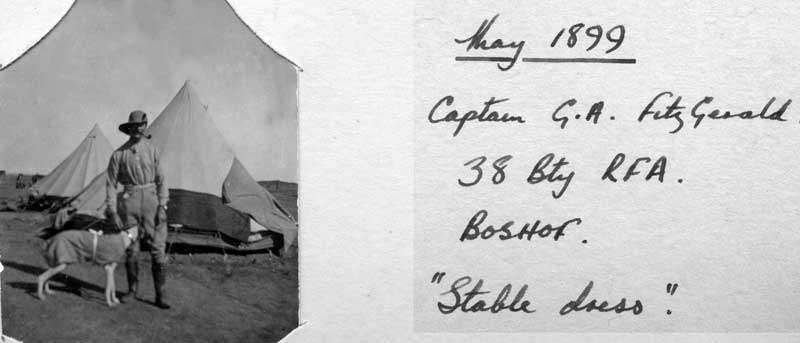 May 1899
Captain G.A. FitzGerald.
38 Bty RFA.
BOSHOF.
"Stable dress".